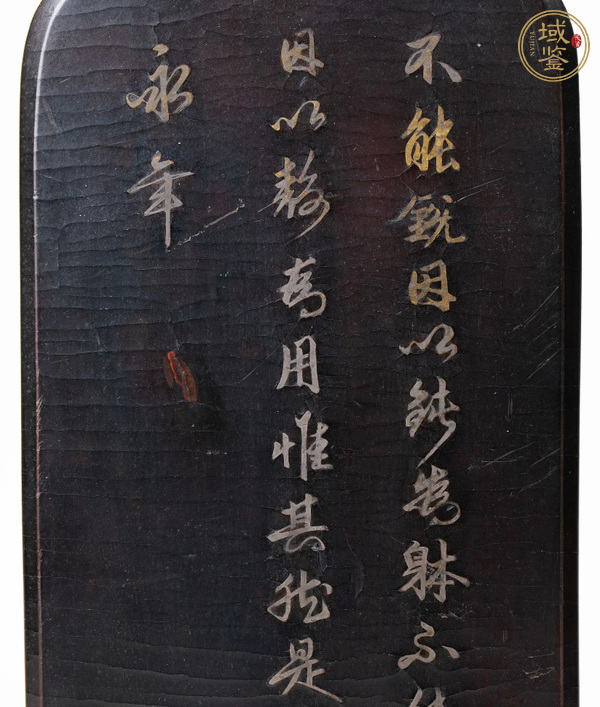 不能銳因以鈍為躰不
因以静為用惟其然是
永年
域鉴